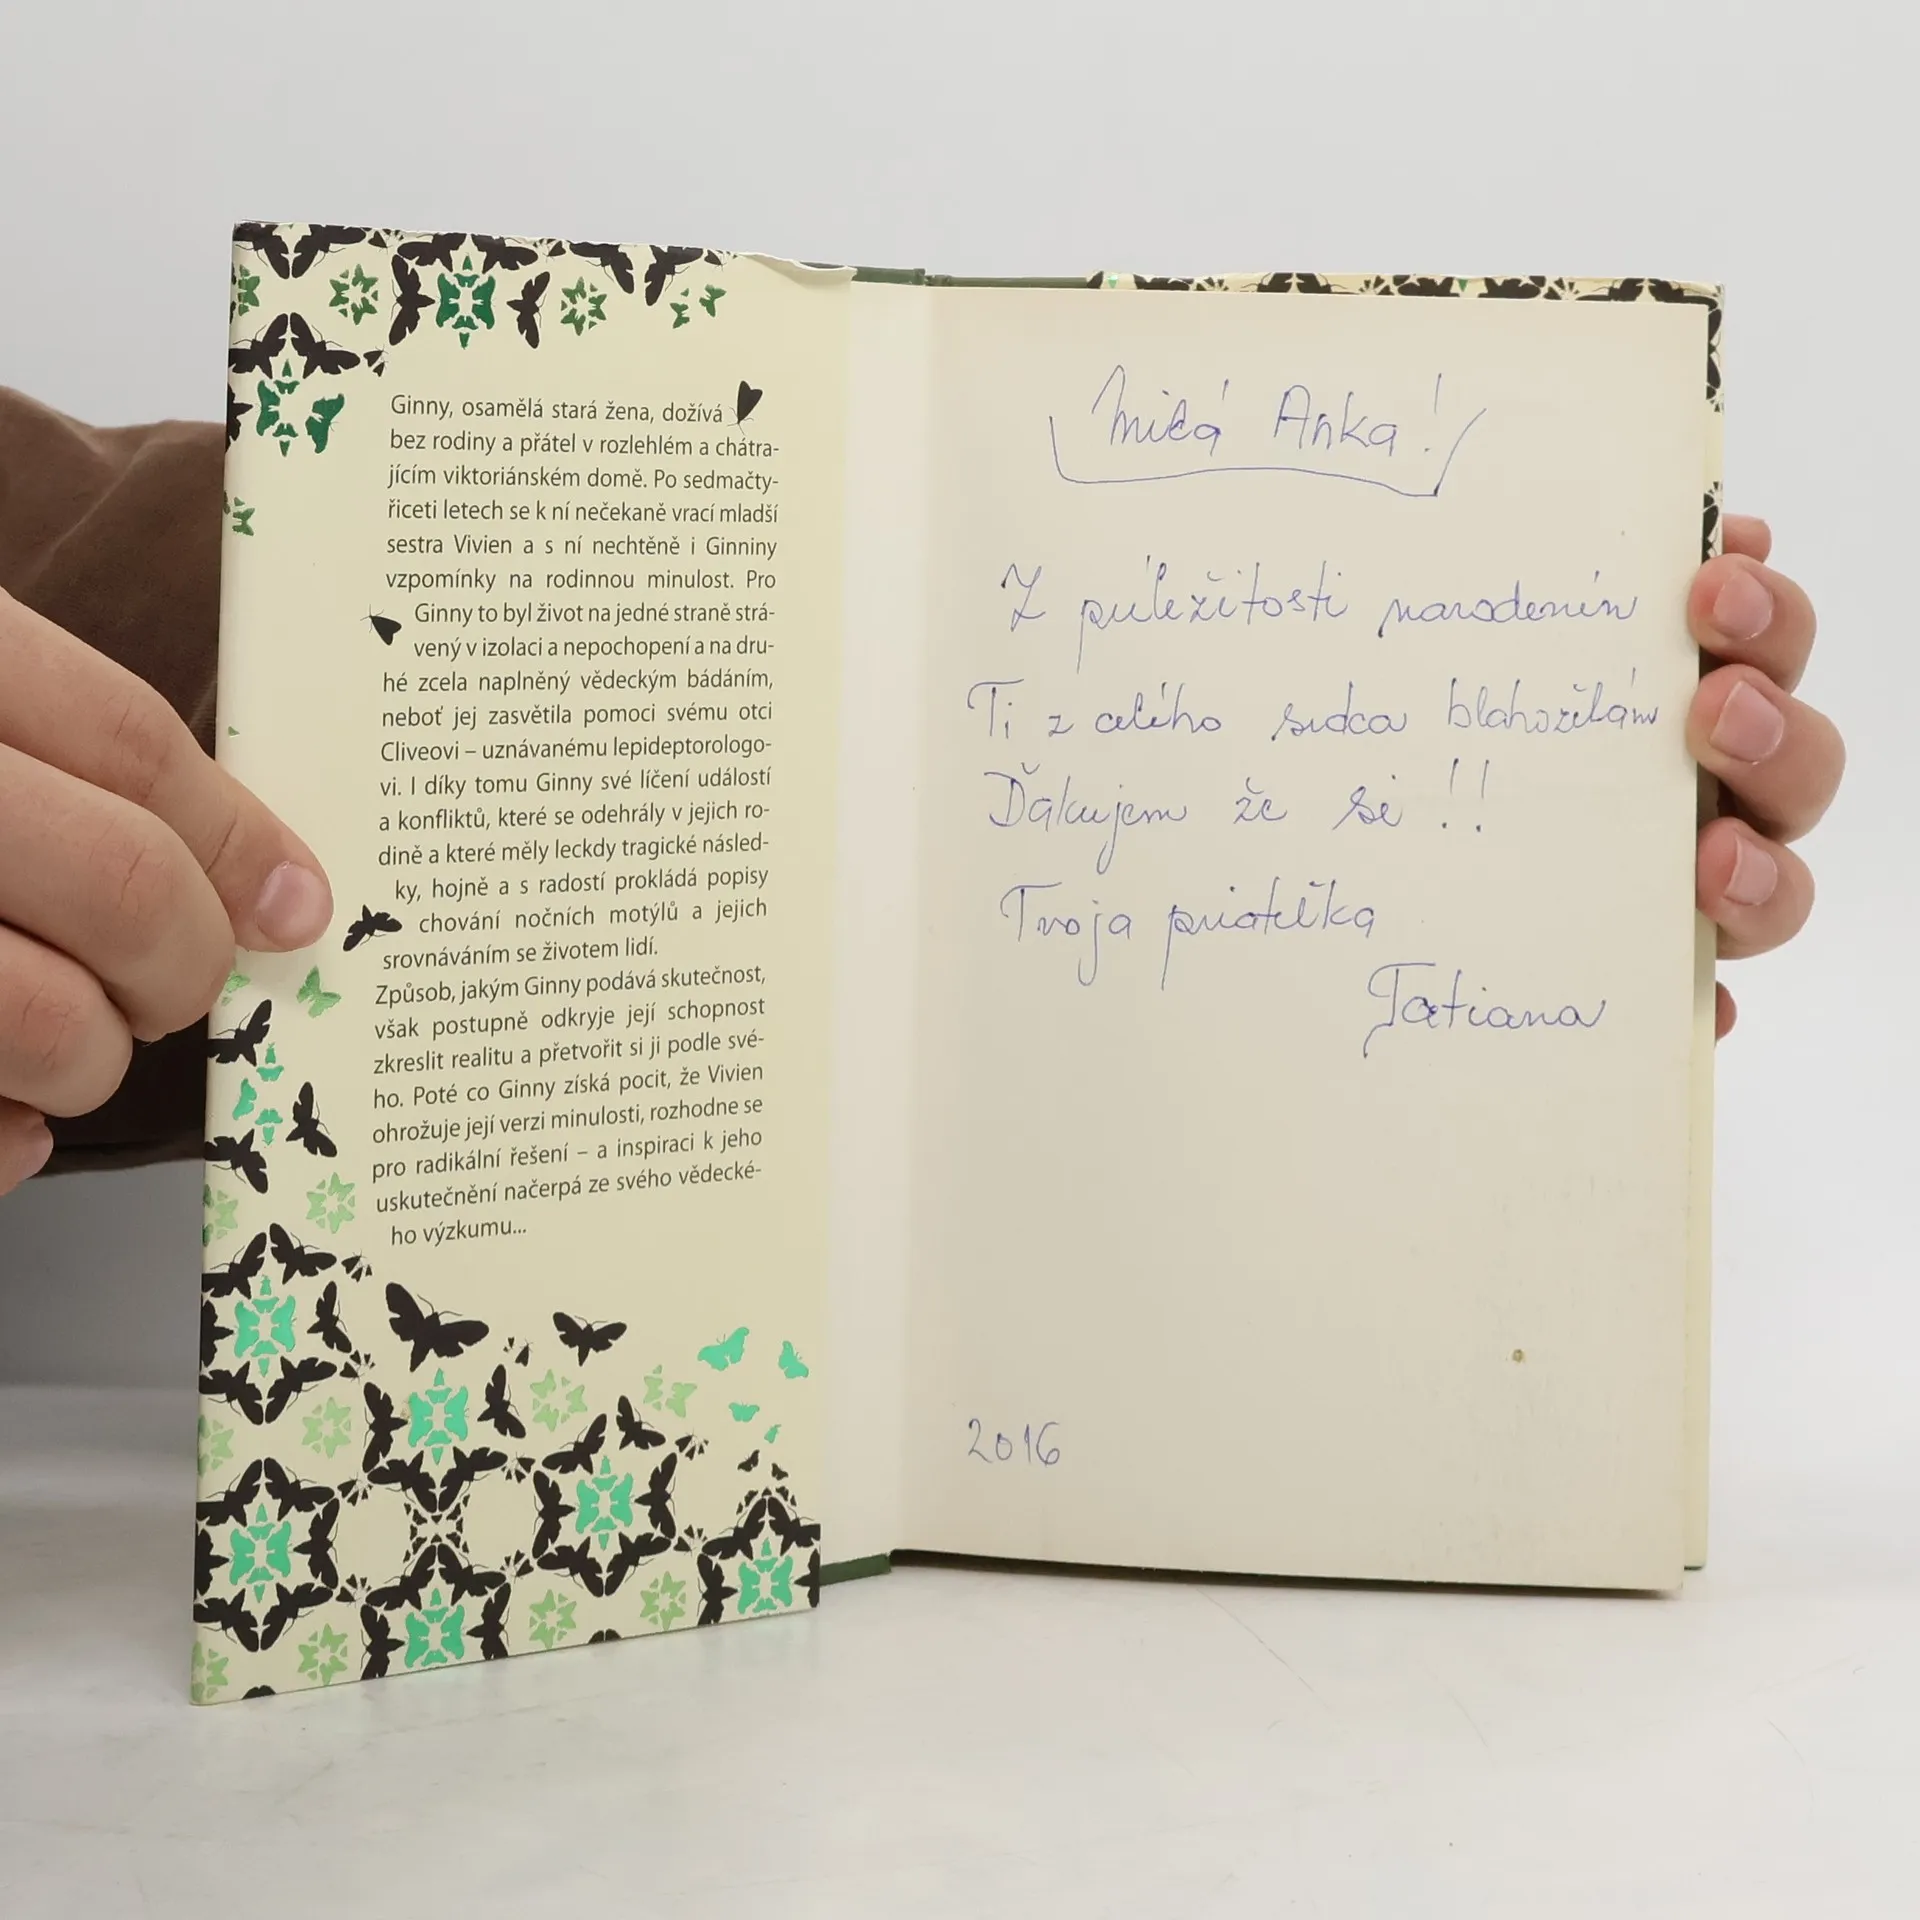 Ginny, osamělá stará žena, dožívá
bez rodiny a přátel v rozlehlém a chátra-
jícím viktoriánském domě. Po sedmačty-
řiceti letech se k ní nečekaně vrací mladší
sestra Vivien a s ní nechtěně i Ginniny
vzpomínky na rodinnou minulost. Pro
Ginny to byl život na jedné straně strá-
vený v izolaci a nepochopení a na dru-
hé zcela naplněný vědeckým bádáním,
neboť jej zasvětila pomoci svému otci
Cliveovi – uznávanému lepideptorologo-
vi. I díky tomu Ginny své líčení událostí
a konfliktů, které se odehrály v jejich ro-
dině a které měly leckdy tragické násled-
ky, hojně a s radostí prokládá popisy
chování nočních motýlů a jejich
srovnáváním se životem lidí.
Způsob, jakým Ginny podává skutečnost,
však postupně odkryje její schopnost
zkreslit realitu a přetvořit si ji podle své-
ho. Poté co Ginny získá pocit, že Vivien
ohrožuje její verzi minulosti, rozhodne se
pro radikální řešení – a inspiraci k jeho
uskutečnění načerpá ze svého vědecké-
ho výzkumu...
Milá Anka!
Z príležitosti narodenín
Ti z celého srdca blahoželám
Ďakujem že si !!
Tvoja priateľka
Tatiana
2016